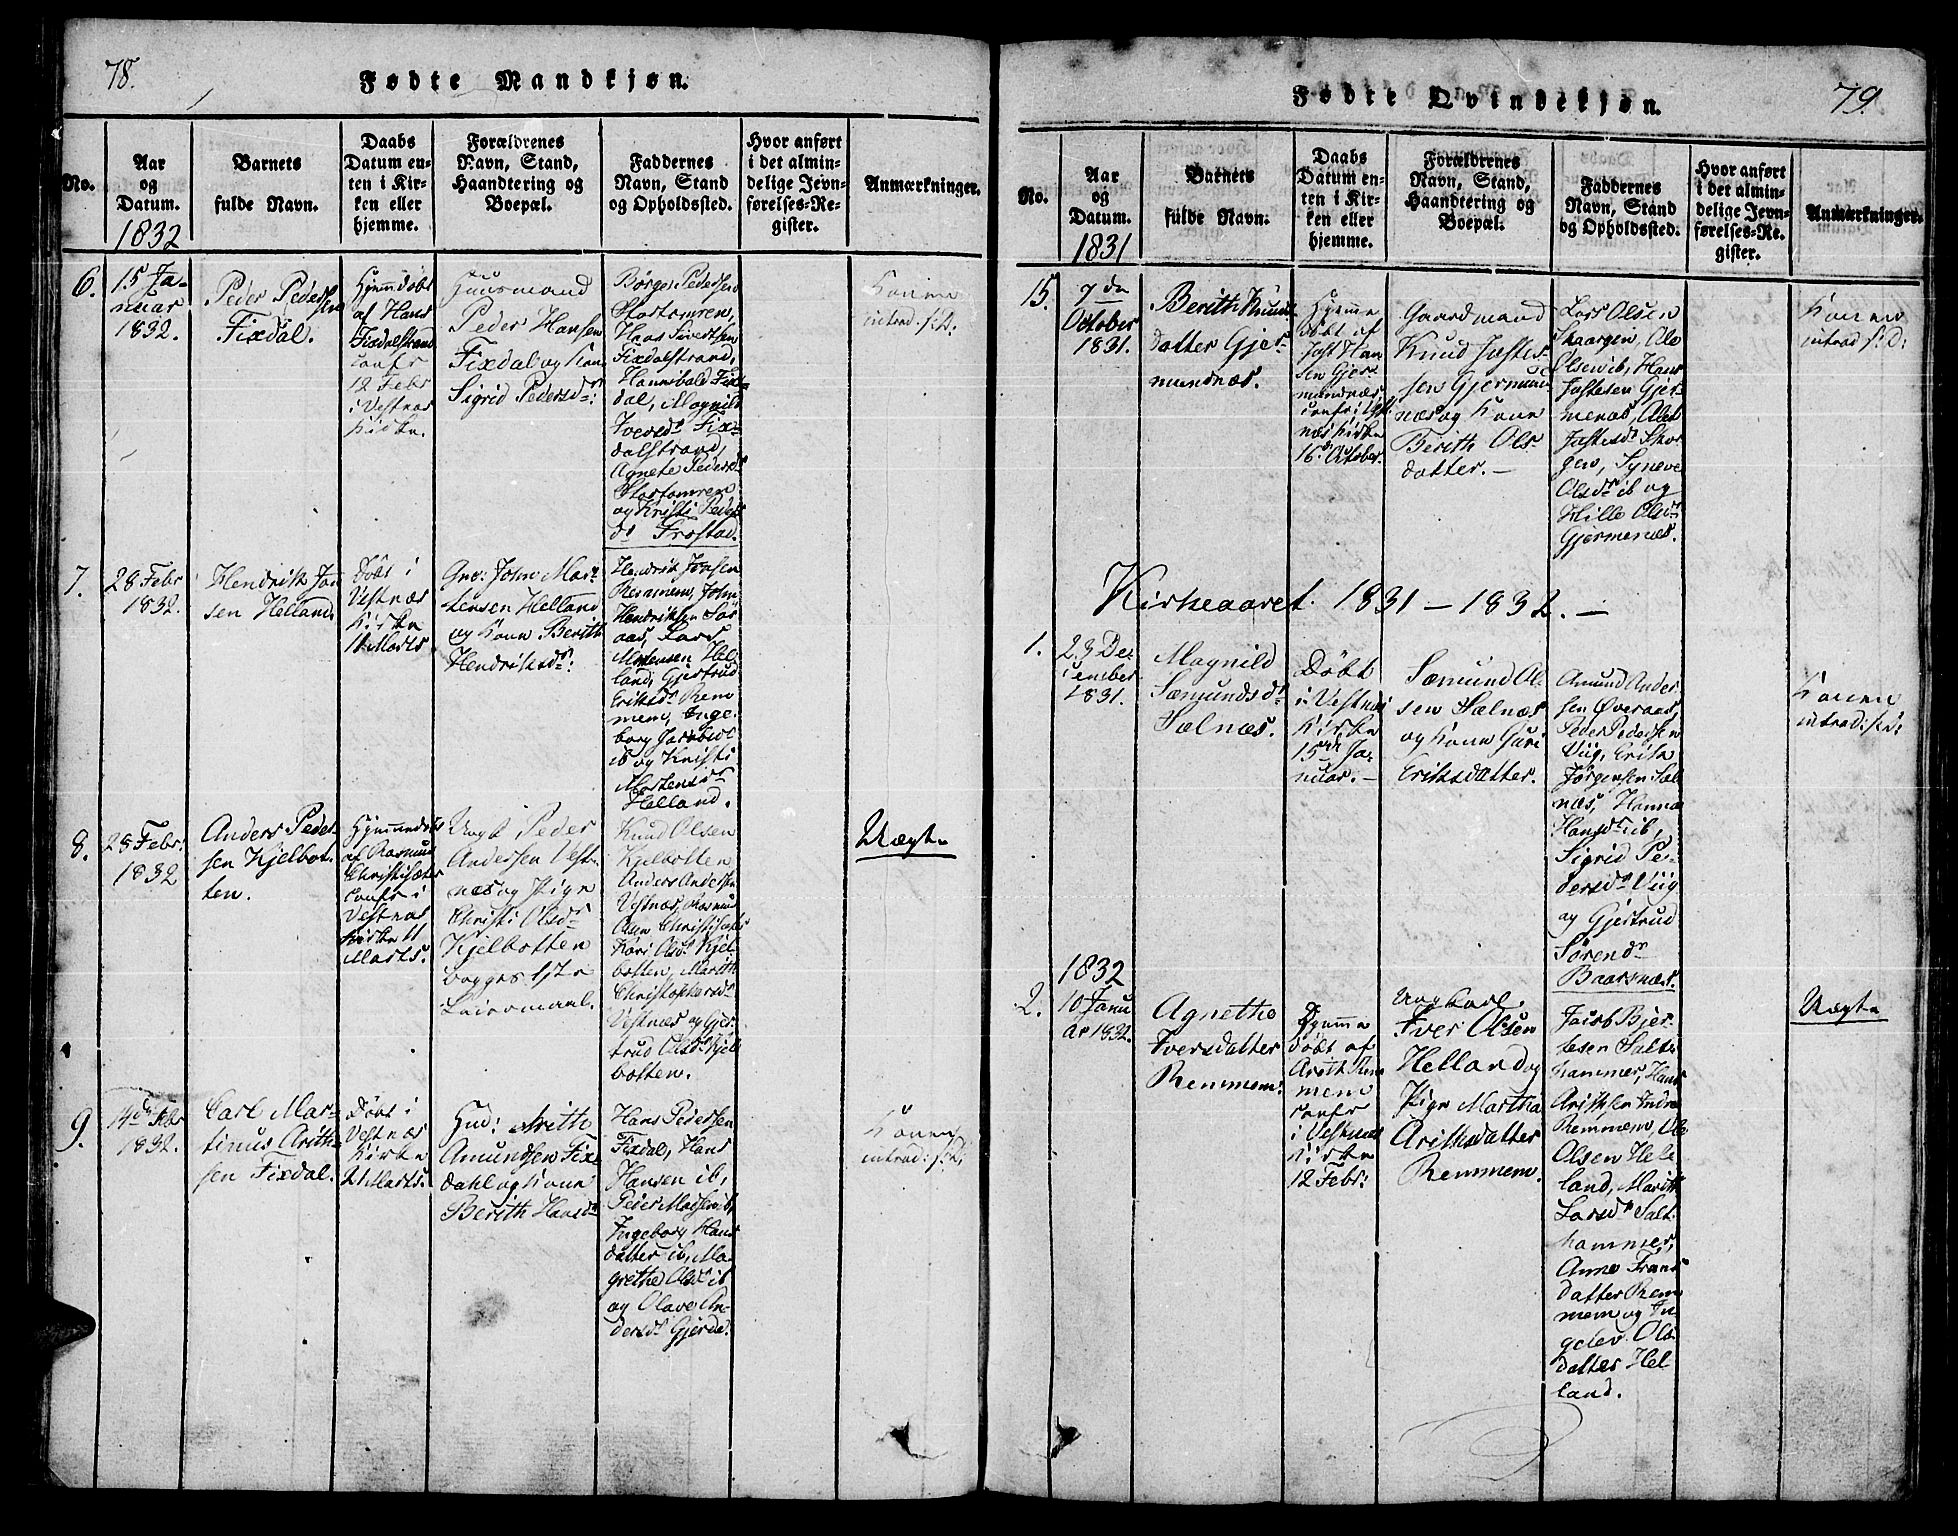 78.
Fødte Mandkjøn.
No.
Aar
og
Datum.
1832
Barnets
fulde Navn.
Daabs
Datum en-
ten i Kir-
ken eller
hjemme.
Forældrenes
Navn, Stand,
Haandtering og
Boepæl.
Faddernes
Navn, Stand
og Opholdssted.
Hvor anført
i det almin-
delige Jevn-
førelses-Re-
gister.
Anmærkninger.
6.
15 Ja-
nuar
1832.
Peder Pedersen
Fixdal.
Hjemdøbt
af Hans
Fixdalstrand
confr
12 Febr
i Vestnæs
Kirke.
Huusmand
Peder Hansen
Fixdal og Kone
Sigrid Pedersdr:
Børge Pedersen
Stostomren,
Hans Sivertsen
Fixdalstrand,
Hannibald Fix-
dal, Magnild
Iversdr Fix-
dalstrand,
Agnete Pedersdr
Stostomren
og Kristi Peders
dr Frostad.
Konen
introd: s: D:
7.
28 Febr
1832.
Hendrik Jon
sen Helland.
Døbt i
Vestnæs
Kirke
11 Marts
Gmd: John Mor-
tensen Helland
og Kone Berith
Hendriksdr:
Hendrik Jonsen
Remmem, John
Hendriksen Sor
aas, Lars
Mortensen Hel-
land, Gjertrud
Eriksdr Rem
mem, Inge-
borg Jacobsdr
ib og Kristi
Mortensdr
Helland.
8.
28 Febr:
1832
Anders Peder-
sen Kjelbot-
ten.
Hjemmedøbt
af Rasmus
Christisæter
Confr i
Vestnæs
Kirke 11
Marts.
Ungk Peder
Andersen Vest-
næs og Pige
Christi Olsdr
Kjelbotten
begges 1ste
Leiermaal.
Knud Olsen
Kjelbotten
Anders Andersen
Vestnæs, Rasmus
Christisæter
Kari Olsdr Kjel-
botten, Marith
Christophersdr
Vestnæs og Gjer-
trud Olsdr Kjel
botten.
Uægte
9.
14de Febr
1832.
Carl Mar-
tinus Arith-
sen Fixdal.
Døbt i
Vestnæs
Kirke
21 Marts.
Gmd: Arith
Amundsen Fix-
dahl og Kone
Berith Hansdr
Hans Pedersen
Fixdal, Hans
Hansen ib,
Peder Madsen ib,
Ingeborg Hans
datter ib, Ma-
grethe Olsdr ib
og Olave An-
dersdr Gjerde.
Konen
introd: s: D:
Fødte Qvindekjøn.
79.
No.
Aar
og
Datum.
1831
Barnets
fulde Navn.
Daabs
Datum en-
ten i Kir-
ken eller
hjemme.
Forældrenes
Navn, Stand,
Haandtering og
Boepæl.
Faddernes
Navn, Stand
og Opholdssted.
Hvor anført
i det almin-
delige Jevn-
førelses-Re-
gister.
Anmærkninger.
15.
7de
October
1831.
Berith Knuds
datter Gjer-
mundnæs.
Hjemme
døbt af
Jost Han
sen Gjer-
mundnæs,
confr i Vest
næs Kirke
16 October.
Gaardmand
Knud Joste-
sen Gjermund
næs og Kone
Berith Ols-
datter.-
Lars Olsen
Skaargen, Ole
Olsen ib, Hans
Jostesen Gjer-
menæs, Olet
Jostesdr Skor
gen, Syneve
Olsdr ib og
Hille Olsdr
Gjermenæs.
Konen
introd: s: D:
Kirkeaaret 1831 - 1832.-
1.
23 De-
cember
1831.
Magnild
Sæmundsdr
Salnæs.
Døbt
i Vestnæs
Kirke
15de Ja-
nuar.-
Sæmund Ol-
sen Salnæs
og Kone Guri
Eriksdatter.
Amund Ander
sen Øveraas
Peder Pedersen
Viig, Erik
Jørgensen Sal
næs, Hanna
Hansdr ib,
Sigrid Pe-
dersdr Viig
og Gjertrud
Sørensdr
Baarsnæs.
Konen
introd: s: D:
1832
2.
10 Janu
ar 1832.
Agnethe
Iversdatter
Remmem.
Hjemme
døbt af
Arith Rem
mem
confr
i Vestnæs
Kirke
12 Febr:
Ungkarl.
Iver Olsen
Helland og
Pige Martha
Arithsdatter
Remmem.
Jacob Bjer-
kesen Salt-
hammer, Hans
Arithsen Indre
Remmem, Ole
Olsen Hel-
land, Marith
Larsdr Salt
hammer,
Anne Frans
datter Rem
mem og In
gelev Ols
datter Hel
land.
Uægte